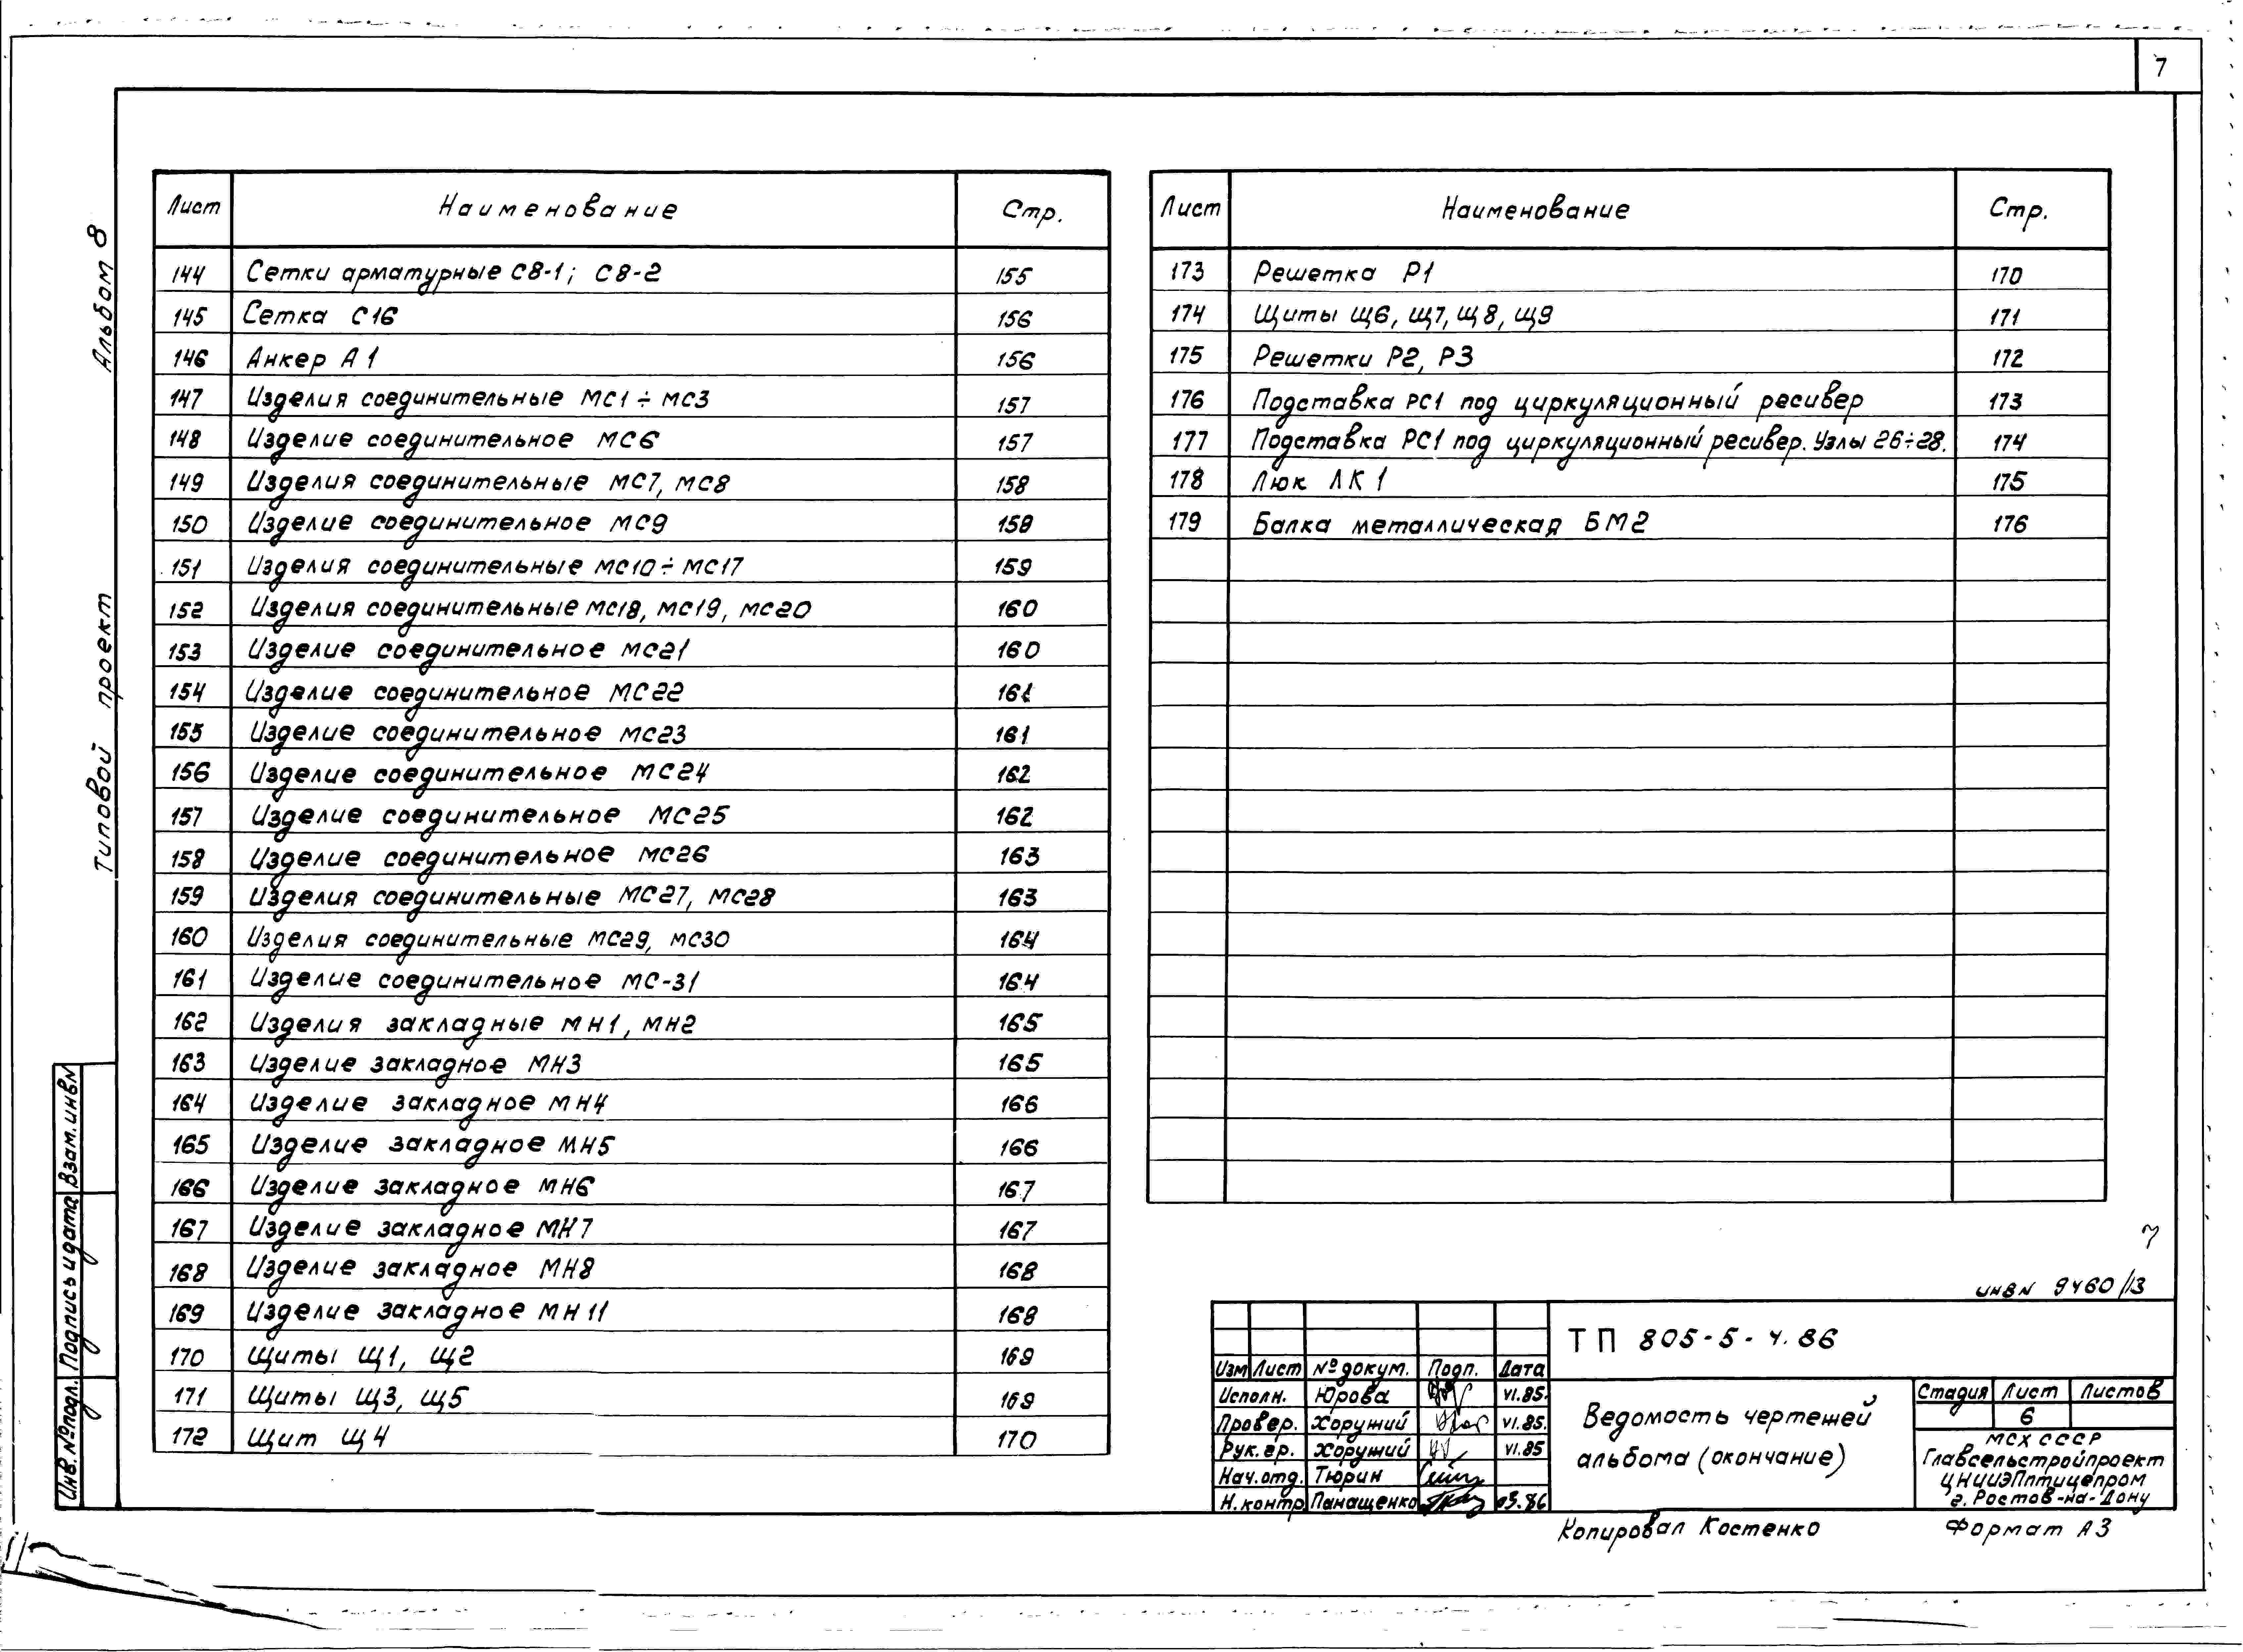 7
Альбом 8
Типовой проект
Лист Наименование Стр.
144 Сетки арматурные С8-1; С8-2 155
145 Сетка С16 156
146 Анкер А1 156
147 Изделия соединительные МС1÷МС3 157
148 Изделие соединительное МС6 157
149 Изделия соединительные МС7, МС8 158
150 Изделие соединительное МС9 158
151 Изделия соединительные МС10÷МС17 159
152 Изделия соединительные МС18, МС19, МС20 160
153 Изделие соединительное МС21 160
154 Изделие соединительное МС22 161
155 Изделие соединительное МС23 161
156 Изделие соединительное МС24 162
157 Изделие соединительное МС25 162
158 Изделие соединительное МС26 163
159 Изделия соединительные МС27, МС28 163
160 Изделия соединительные МС29, МС30 164
161 Изделие соединительное МС-31 164
162 Изделия закладные МН1, МН2 165
163 Изделие закладное МН3 165
164 Изделие закладное МН4 166
165 Изделие закладное МН5 166
166 Изделие закладное МН6 167
167 Изделие закладное МН7 167
168 Изделие закладное МН8 168
169 Изделие закладное МН11 168
170 Щиты Щ1, Щ2 169
171 Щиты Щ3, Щ5 169
172 Щит Щ4 170
Лист Наименование Стр.
173 Решетка Р1 170
174 Щиты Щ6, Щ7, Щ8, Щ9 171
175 Решетки Р2, Р3 172
176 Подставка РС1 под циркуляционный ресивер 173
177 Подставка РС1 под циркуляционный ресивер. Узлы 26÷28. 174
178 Люк ЛК1 175
179 Балка металлическая БМ2 176
Взам.инв№
Подпись и дата
Инв.№подл.
7
инв№ 9460/13
ТП 805-5-4.86
Изм Лист №докум. Подп. Дата
Исполн. Юрова VI.85.
Провер. Хоружий VI.85.
Рук.гр. Хоружий VI.85
Нач.отд. Тюрин
Н.контр. Панащенко 03.86
Ведомость чертежей
альбома (окончание)
Стадия Лист Листов
6
МСХ СССР
Главсельстройпроект
ЦНИИЭПптицепром
г. Ростов-на-Дону
Копировал Костенко
Формат А3